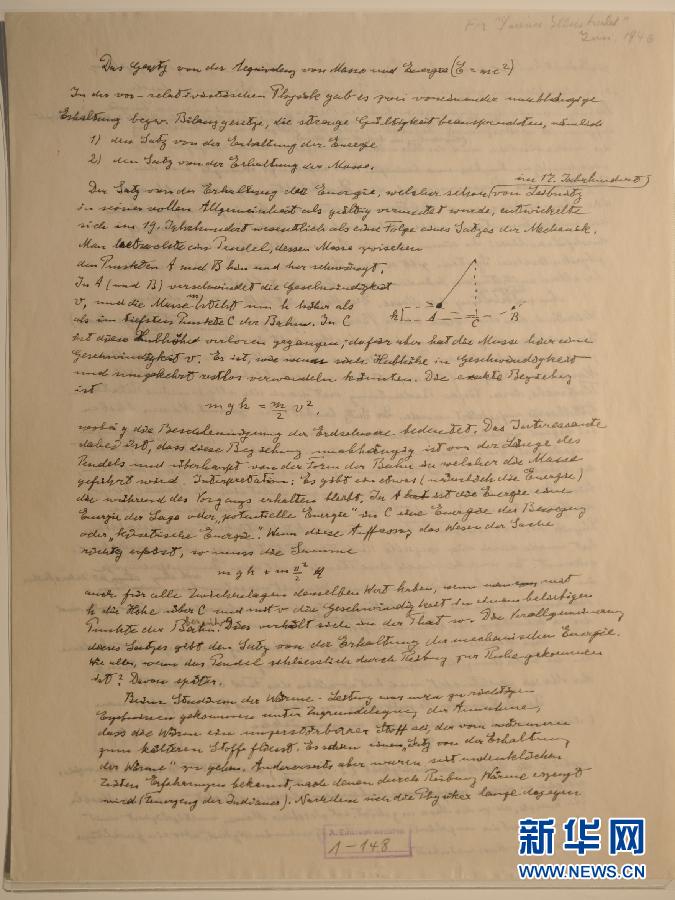 For "Science Illustrated"
1946
Das Gesetz von der Aequivalenz von Masse und Energie (E = mc²)
In der vor-relativistischen Physik gab es zwei voneinander unabhängige
Erhaltung bezw. Bilanzgesetze, die strenge Gültigkeit beanspruchten, nämlich
1) den Satz von der Erhaltung der Energie
2) den Satz von der Erhaltung der Masse.
im 17. Jahrhundert
Der Satz von der Erhaltung der Energie, welcher schon von Leibnitz
in seiner vollen Allgemeinheit als gültig vermutet wurde, entwickelte
sich im 19. Jahrhundert wesentlich als eine Folge eines Satzes der Mechanik.
Man betrachte ein Pendel, dessen Masse zwischen
den Punkten A und B hin und her schwingt.
In A (und B) verschwindet die Geschwindigkeit
v, und die Masse m steht um h höher als
als im tiefsten Punkte C der Bahn. In C
h A C B
ist diese Hubhöhe verloren gegangen; dafür aber hat die Masse hier eine
Geschwindigkeit v. Es ist, wie wenn sich Hubhöhe in Geschwindigkeit
und umgekehrt restlos verwandeln könnten. Die exakte Beziehung
ist
m g h = m/2 v²,
wobei g die Beschleunigung der Erdschwere bedeutet. Das Interessante
dabei ist, dass diese Beziehung unabhängig ist von der Länge des
Pendels und überhaupt von der Form der Bahn in welcher die Masse
geführt wird. Interpretation: Es gibt ein etwas (nämlich die Energie)
das während des Vorgangs erhalten bleibt. In A ist die Energie eine
Energie der Lage oder „potentielle Energie" in C eine Energie der Bewegung
oder „kinetische Energie". Wenn diese Auffassung das Wesen der Sache
richtig erfasst, so muss die Summe
m g h + m v²/2
auch für alle Zwischenlagen denselben Wert haben, wenn man mit
h die Höhe über C und mit v die Geschwindigkeit in einem beliebigen
Punkte der Bahn. Dies verhält sich in der That so. Die Verallgemeinerung
dieses Satzes gibt den Satz von der Erhaltung der mechanischen Energie.
Wie aber, wenn das Pendel schliesslich durch Reibung zur Ruhe gekommen
ist? Davon später.
Beim Studium der Wärme-Leitung war man zu richtigen
Ergebnissen gekommen unter Zugrundelegung der Annahme,
dass die Wärme ein unzerstörbarer Stoff sei, der vom wärmeren
zum kälteren Stoffe fliesst. Es schien einen „Satz von der Erhaltung
der Wärme" zu geben. Andererseits aber waren seit undenklichen
Zeiten Erfahrungen bekannt, nach denen durch Reibung Wärme erzeugt
wird (Feuerzeug der Indianer). Nachdem sich die Physiker lange dagegen
1-148
新华网
WWW.NEWS.CN